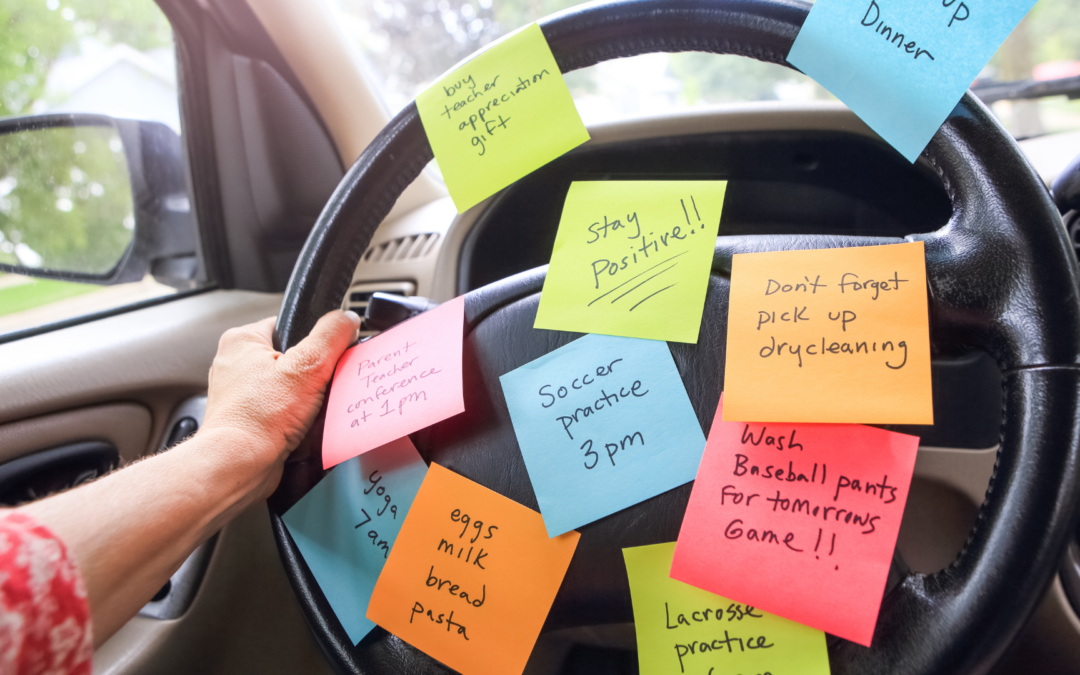 up
Dinner
buy
teacher
appreciation
gift
Stay
Positive!!
Don't forget
pick up
drycleaning
Parent
Teacher
conference
at 1pm
Soccer
practice
3pm
Wash
Baseball pants
for tomorrows
Game!!
Yoga
7am
eggs
milk
bread
pasta
Lacrosse
practice